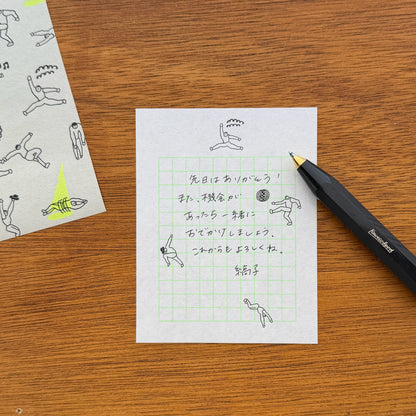 先日はありがとう!
また、機会が
あったら一緒に
おでかけしましょう。
これからもよろしくね。
縞子
Kaweco